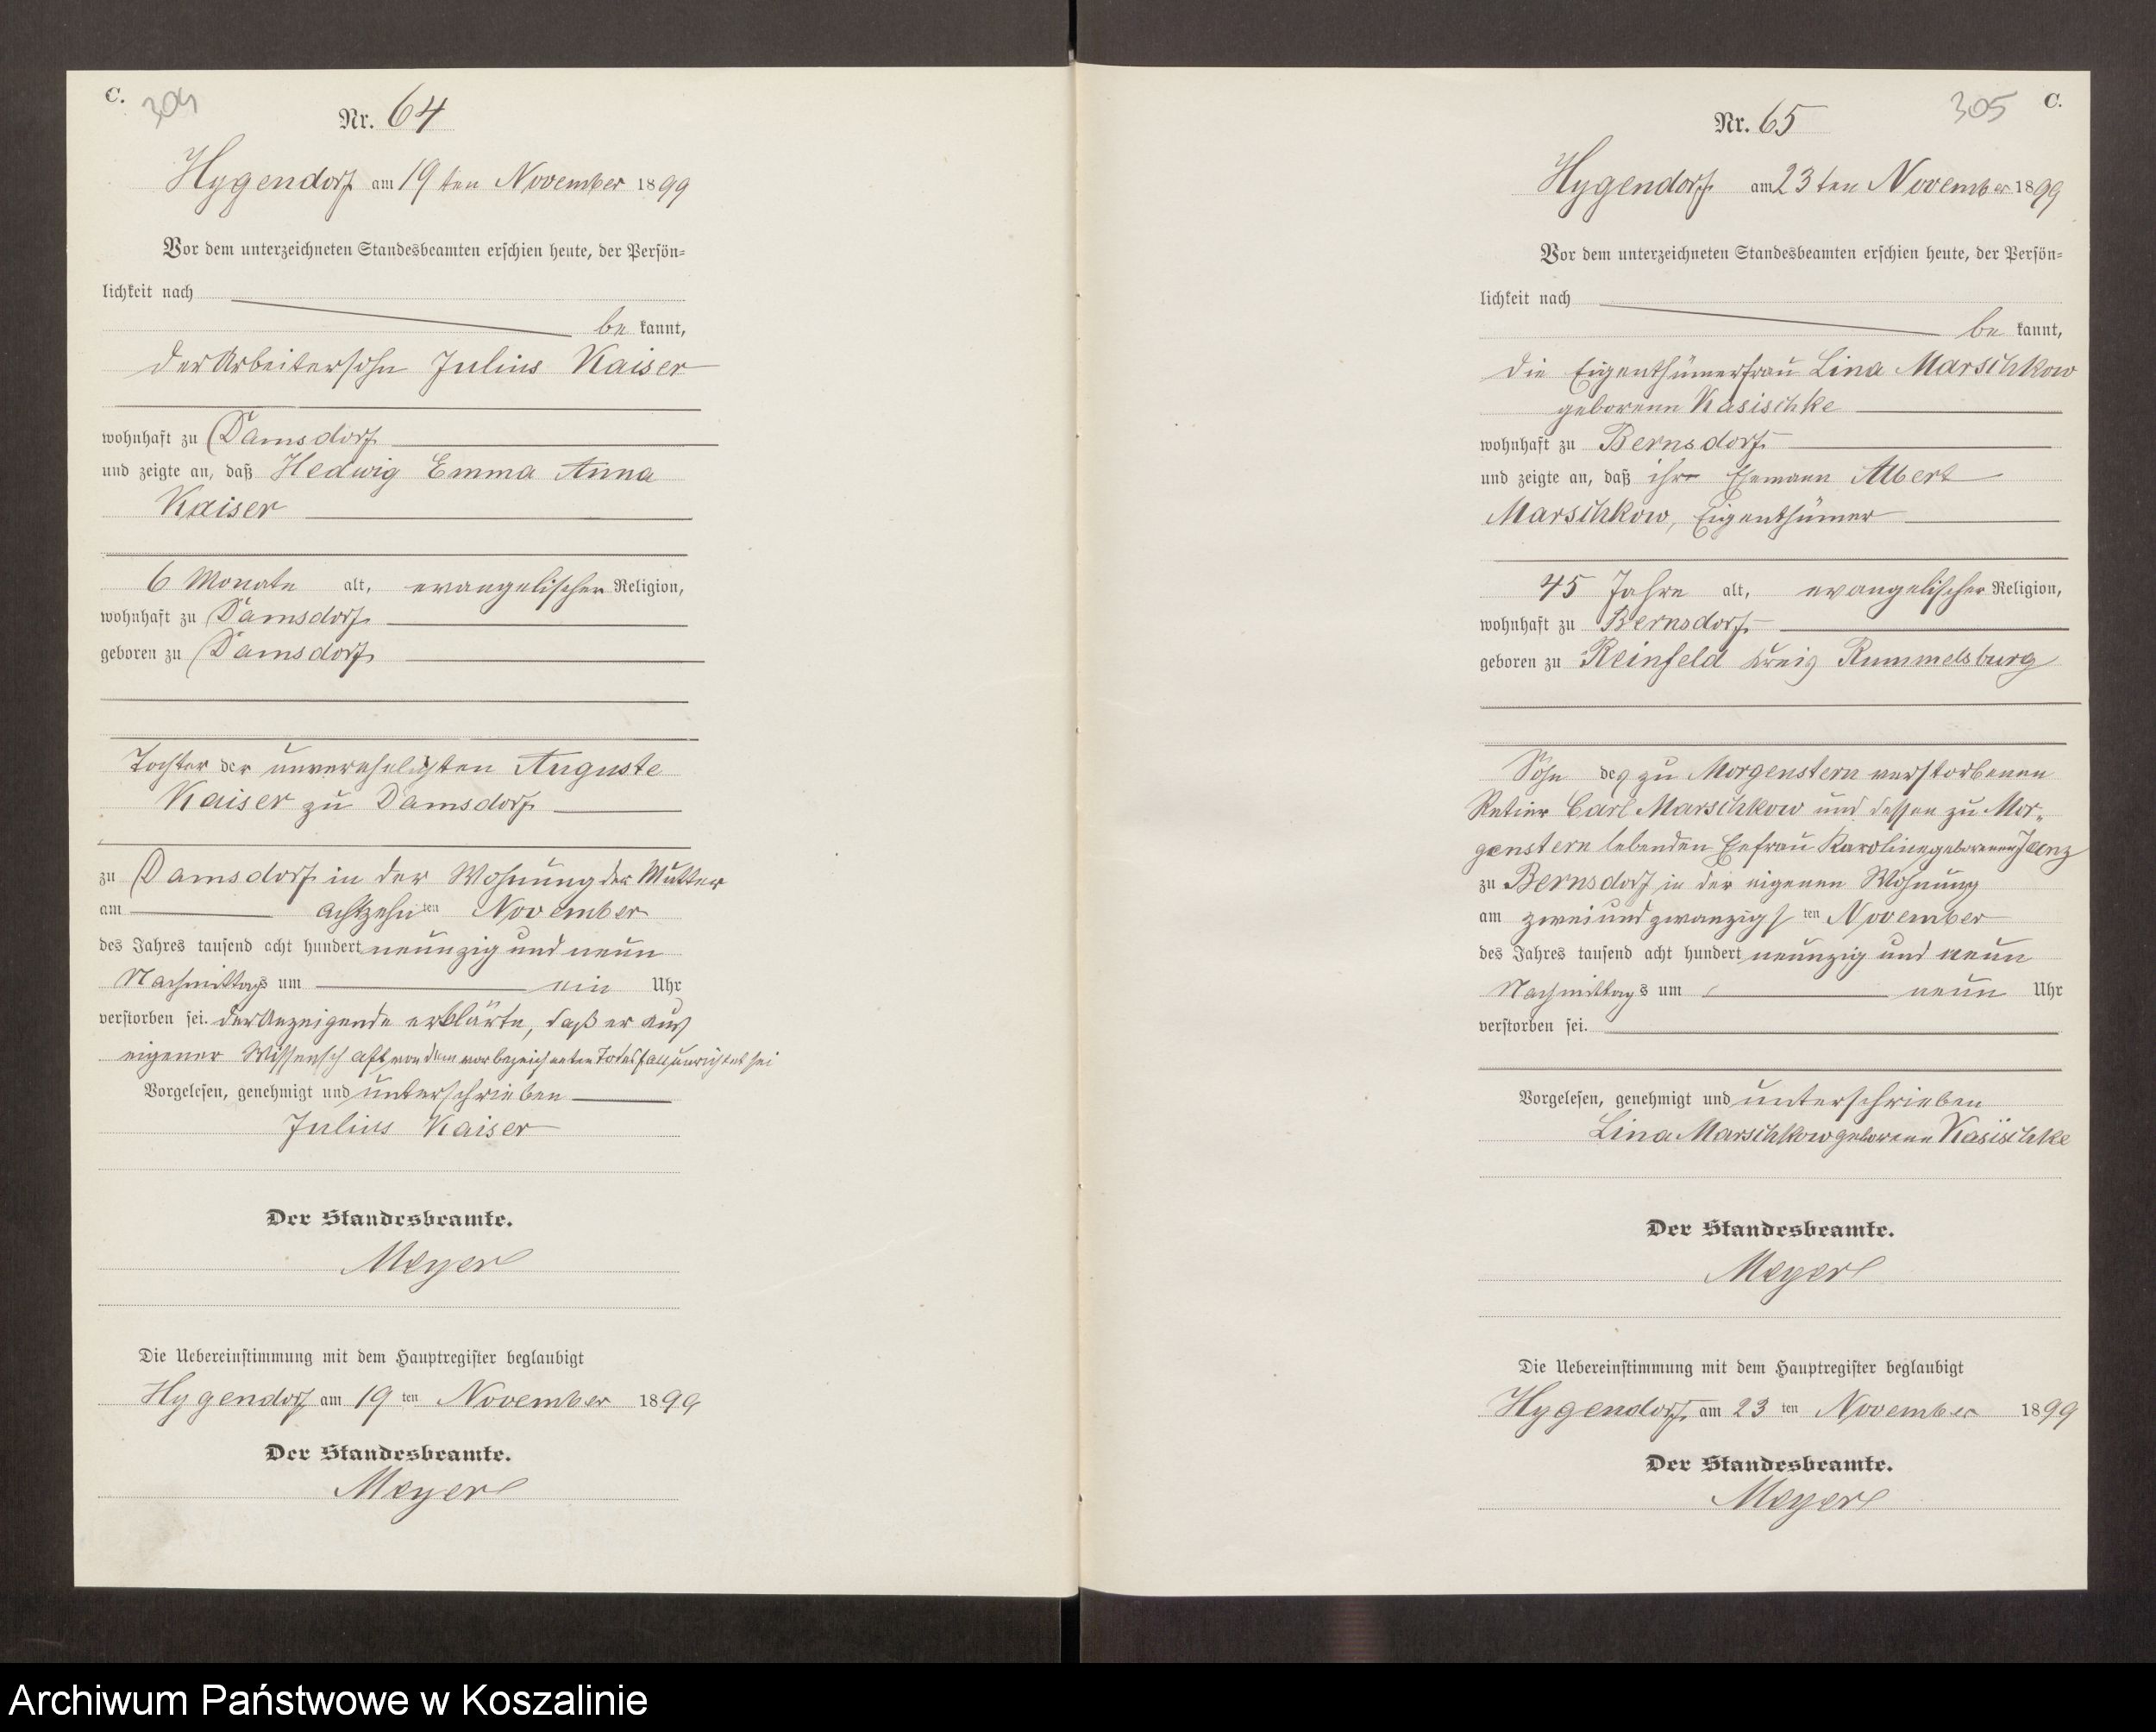 C.
304
Nr. 64
Hygendorf am 19 ten November 1899
Vor dem unterzeichneten Standesbeamten erschien heute, der Persön-
lichkeit nach
be kannt,
der Arbeitersohn Julius Kaiser
wohnhaft zu Damsdorf
und zeigte an, daß Hedwig Emma Anna
Kaiser
6 Monate alt, evangelischer Religion,
wohnhaft zu Damsdorf
geboren zu Damsdorf
Tochter der unverehelichten Auguste
Kaiser zu Damsdorf
zu Damsdorf in der Wohnung der Mutter
am achtzehn ten November
des Jahres tausend acht hundert neunzig und neun
Nachmittags um ein Uhr
verstorben sei. der Anzeigende erklärte, daß er aus
eigener Wissenschaft von dem vorbezeichneten Todesfall unterrichtet sei
Vorgelesen, genehmigt und unterschrieben
Julius Kaiser
Der Standesbeamte.
Meyer
Die Uebereinstimmung mit dem Hauptregister beglaubigt
Hygendorf am 19 ten November 1899
Der Standesbeamte.
Meyer
305 C.
Nr. 65
Hygendorf am 23 ten November 1899
Vor dem unterzeichneten Standesbeamten erschien heute, der Persön-
lichkeit nach
be kannt,
die Eigenthümerfrau Lina Marschkow
geborene Kasischke
wohnhaft zu Bernsdorf
und zeigte an, daß ihr Ehemann Albert
Marschkow, Eigenthümer
45 Jahre alt, evangelischer Religion,
wohnhaft zu Bernsdorf
geboren zu Reinfeld Kreis Rummelsburg
Sohn des zu Morgenstern verstorbenen
Retier Carl Marschkow und dessen zu Mor-
genstern lebenden Ehefrau Karoline geborenen Janz
zu Bernsdorf in der eigenen Wohnung
am zweiundzwanzigs ten November
des Jahres tausend acht hundert neunzig und neun
Nachmittags um neun Uhr
verstorben sei.
Vorgelesen, genehmigt und unterschrieben
Lina Marschkow geborene Kasischke
Der Standesbeamte.
Meyer
Die Uebereinstimmung mit dem Hauptregister beglaubigt
Hygendorf, am 23 ten November 1899
Der Standesbeamte.
Meyer
Archiwum Państwowe w Koszalinie